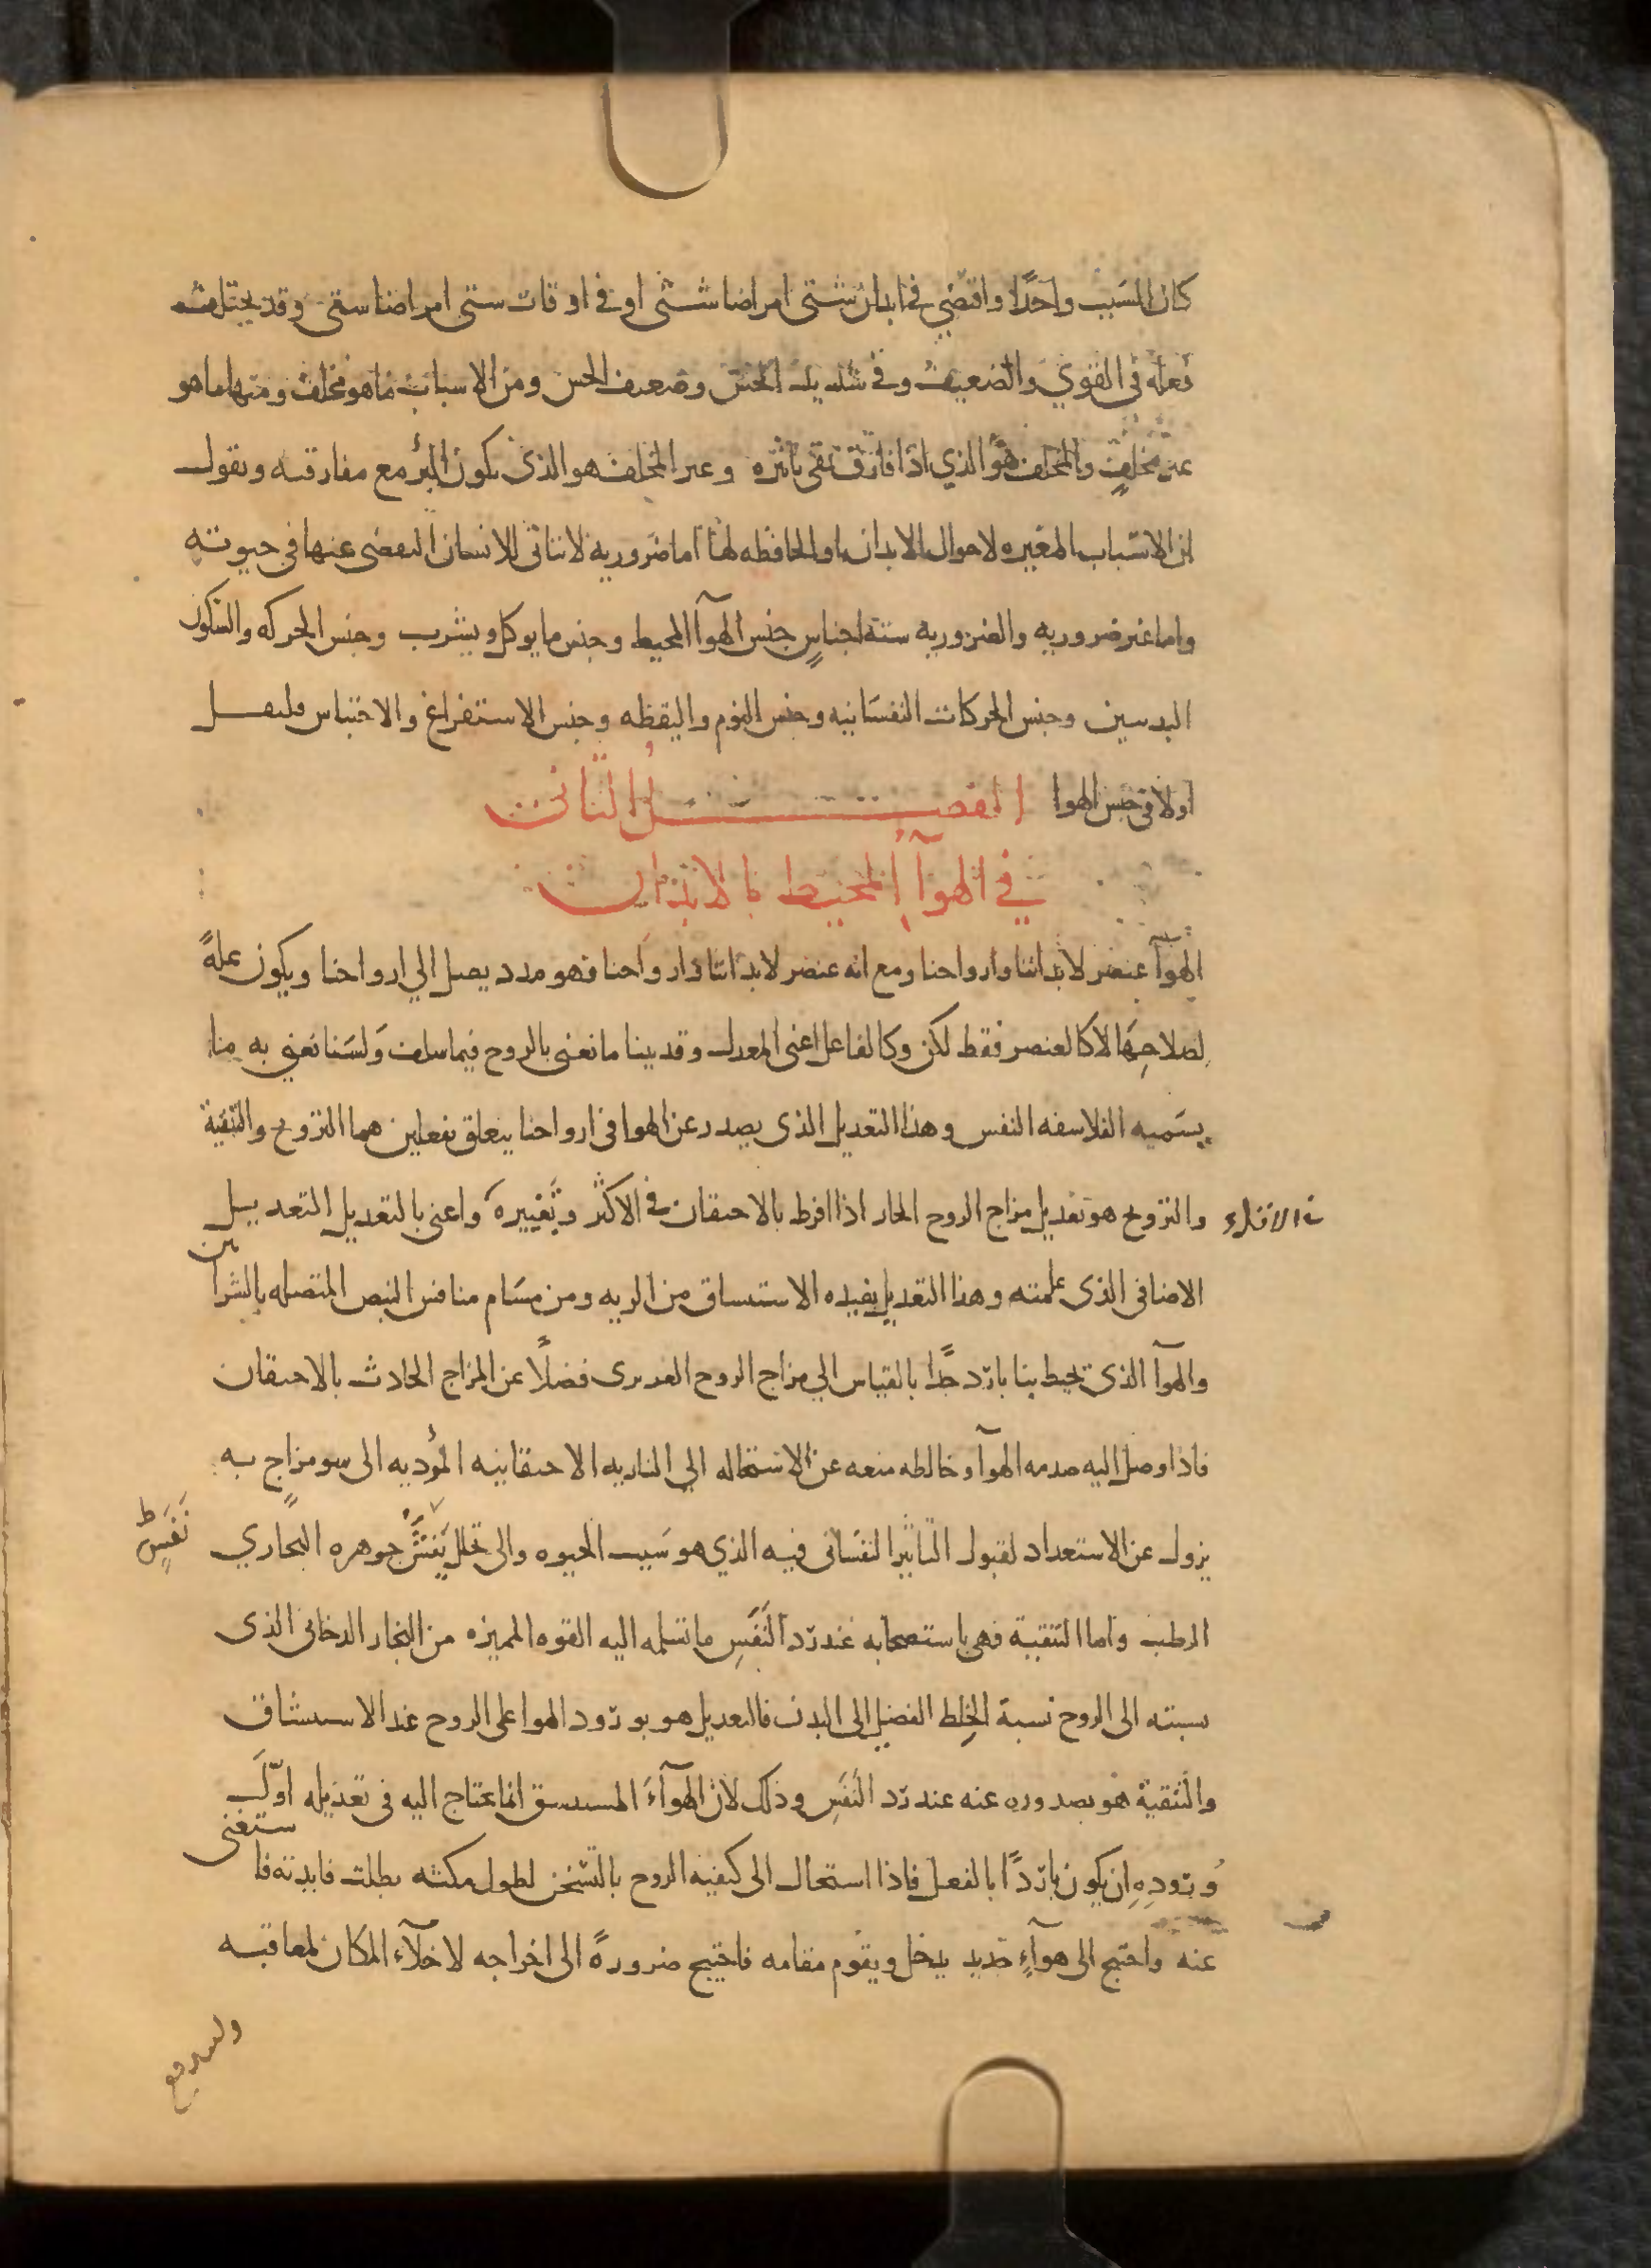 كان السبب واحدًا واقتضي في ابدان شتى امراضا شتى او في اوقات ستى امراضا ستى وقد يختلف
فعله في القوي والضعيف وفي شديد الحس وضعيف الحس ومن الاسباب ما هو مخلف ومنها ما هو
غير مخلف والمخلف هو الذي اذا فارق بقى تاثيره وغير المخلف هو الذي يكون البرؤ مع مفارقته ونقول
ان الاسباب المغيره لاحوال الابدان او الحافظه لها اما ضروريه لا يتاتى للانسان التفصى عنها في حيوته
واما غير ضروريه والضروريه ستة اجناسٍ جنس الهوآ المحيط وجنس ما يوكل ويشرب وجنس الحركه والسكون
البدنيين وجنس الحركات النفسَانيه وجنس النوم واليقظه وجنس الاستفراغ والاحتباس فلنقل
اولا في جنس الهوا الفصل الثاني
في الهوآ المحيط بالابدان
الهوآ عنصر لابداننا وارواحنا ومع انه عنصر لابداننا وارواحنا فهو مدد يصل الي ارواحنا ويكون علةً
لصلاحِهَا لا كالعنصر فقط لكن وكالفاعل اعنى المعدل وقد بينا ما نعنى بالروح فيما سلف وَلسَنا نعني به ما
يسَميه الفلاسفه النفس وهذا التعديل الذى يصدر عن الهوا في ارواحنا يتعلق بفعلين هما التروح والتنقية
والتروح هو تعديل مزاج الروح الحار اذا افرط بالاحتقان في الاكثر وتَغييره واعنى بالتعديل التعديل
الاضافى الذى علمته وهذا التعديل يفيده الاستنساق من الريه ومن مسَام منافس النبض المتصله بالشرايين
والهوآ الذى تحيط بنا بارد جدًا بالقياس الي مزاج الروح الغريزى فضلًا عن المزاج الحادث بالاحتقان
فاذا وصل اليه صدمه الهوآ وخالطه منعه عن الاستحاله الي الناريه الاحتقانيه المؤديه الى سو مزاج به
يزول عن الاستعداد لقبول التاثير النفسَانى فيه الذي هو سَبب الحيوه والى تحلل يَتفشَّ جوهره البخاري
نَفَسٍ ط
الرطب واما التنقية فهى باستصحابه عند رد النَفَسِ ما تسلمه اليه القوه المميزه من البخار الدخانى الذى
نسبته الى الروح نسبة الخِلط الفضلى الى البدن فالتعديل هو بورود الهوا على الروح عند الاستنشاق
والتنقية هو بصدوره عنه عند رد النَفَسِ وذلك لان الهوآءَ المستنسق انما يحتاج اليه في تعديله اوّلَ
وُرودِهِ ان يكون باردًا بالفعل فاذا استحال الى كيفية الروح بالتسَخن لطول مكثه بطلت فايدته فاستغنى
عنه واحتيج الى هوآءٍ جديد يدخل ويقوم مقامه فاحتيج ضرورةً الى اخراجه لاخلآء المكان لمعاقبه
وليندفع